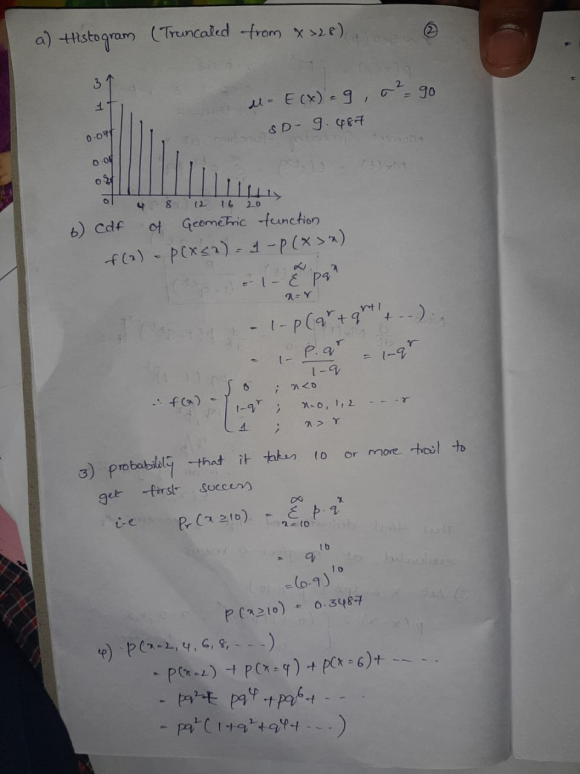 ②
a) Histogram (Truncated from x>28)
3
1
0.09
0.06
0
4 8 12 16 20
μ - E(x) = 9 , σ² = 90
SD - 9.487
b) cdf of Geometric function
f(x) = P(X≤x) = 1 - P(X>x)
= 1 - Σ^∞_{x=r} pq^x
= 1 - p(q^r + q^{r+1} + ---)
= 1 - p.q^r/1-q = 1-q^r
∴ f(x) = { 0 ; x<0
1-q^r ; x=0,1,2 ---- r
1 ; x>r
3) probability that it takes 10 or more trail to
get first success
i.e Pr(x≥10) = Σ^∞_{x=10} p.q^x
= q^10
= (0.9)^10
P(x≥10) = 0.3487
4) P(x=2,4,6,8,----)
= P(x=2) + P(x=4) + P(x=6) + -----
= pq² + pq⁴ + pq⁶ + ---
= pq²(1+q²+q⁴+---)